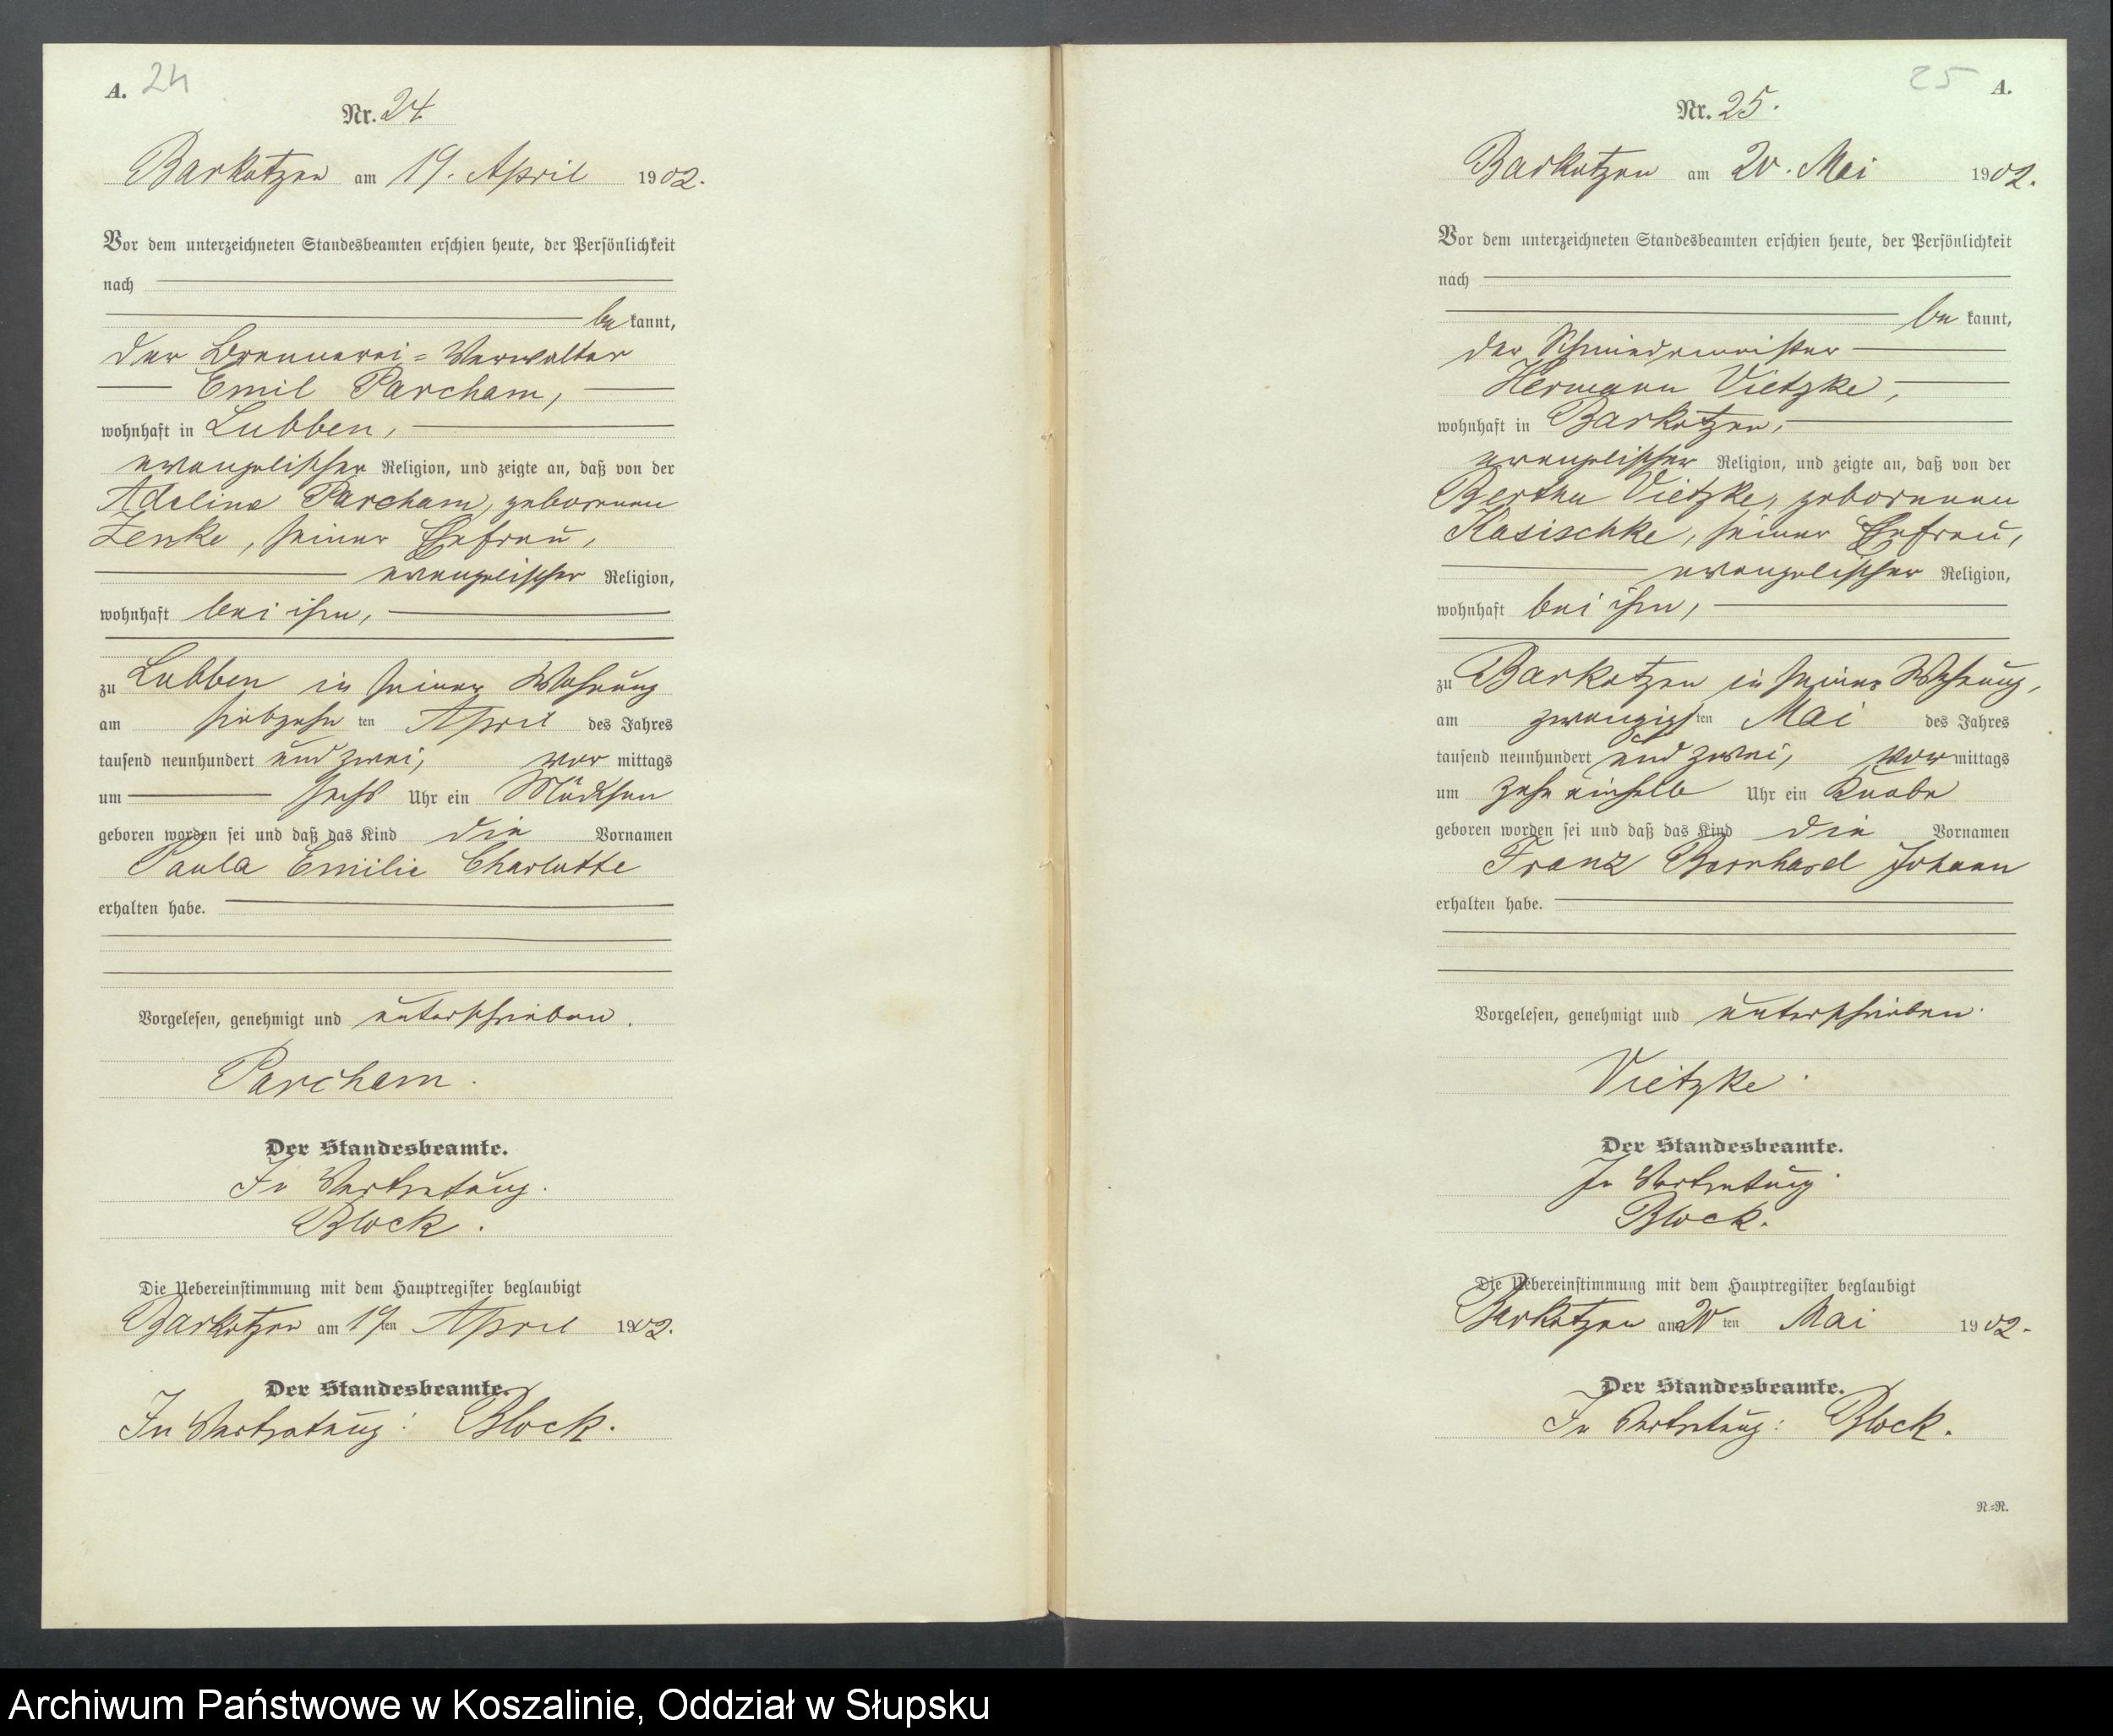 A. 24
Nr. 24
Barkotzen am 19. April 1902.
Vor dem unterzeichneten Standesbeamten erschien heute, der Persönlichkeit
nach
be kannt,
der Brennerei-Verwalter
Emil Parcham,
wohnhaft in Lubben,
evangelischer Religion, und zeigte an, daß von der
Adeline Parcham, geborenen
Zenke, seiner Ehefrau,
evangelischer Religion,
wohnhaft bei ihm,
zu Lubben in seiner Wohnung
am siebzehn ten April des Jahres
tausend neunhundert und zwei, vor mittags
um sechs Uhr ein Mädchen
geboren worden sei und daß das Kind die Vornamen
Paula Emilie Charlotte
erhalten habe.
Vorgelesen, genehmigt und unterschrieben.
Parcham.
Der Standesbeamte.
In Vertretung.
Block.
Die Uebereinstimmung mit dem Hauptregister beglaubigt
Barkotzen am 19ten April 1902.
Der Standesbeamte.
In Vertretung: Block.
25 A.
Nr. 25.
Barkotzen am 20. Mai 1902.
Vor dem unterzeichneten Standesbeamten erschien heute, der Persönlichkeit
nach
be kannt,
der Schmiedemeister
Hermann Vietzke,
wohnhaft in Barkotzen,
evangelischer Religion, und zeigte an, daß von der
Bertha Vietzke, geborenen
Kasischke, seiner Ehefrau,
evangelischer Religion,
wohnhaft bei ihm,
zu Barkotzen in seiner Wohnung,
am zwanzigsten Mai des Jahres
tausend neunhundert und zwei, vor mittags
um zehn einhalb Uhr ein Knabe
geboren worden sei und daß das Kind die Vornamen
Franz Bernhard Johann
erhalten habe.
Vorgelesen, genehmigt und unterschrieben.
Vietzke.
Der Standesbeamte.
In Vertretung.
Block.
Die Uebereinstimmung mit dem Hauptregister beglaubigt
Barkotzen am 20 ten Mai 1902.
Der Standesbeamte.
In Vertretung: Block.
N.=N.
Archiwum Państwowe w Koszalinie, Oddział w Słupsku